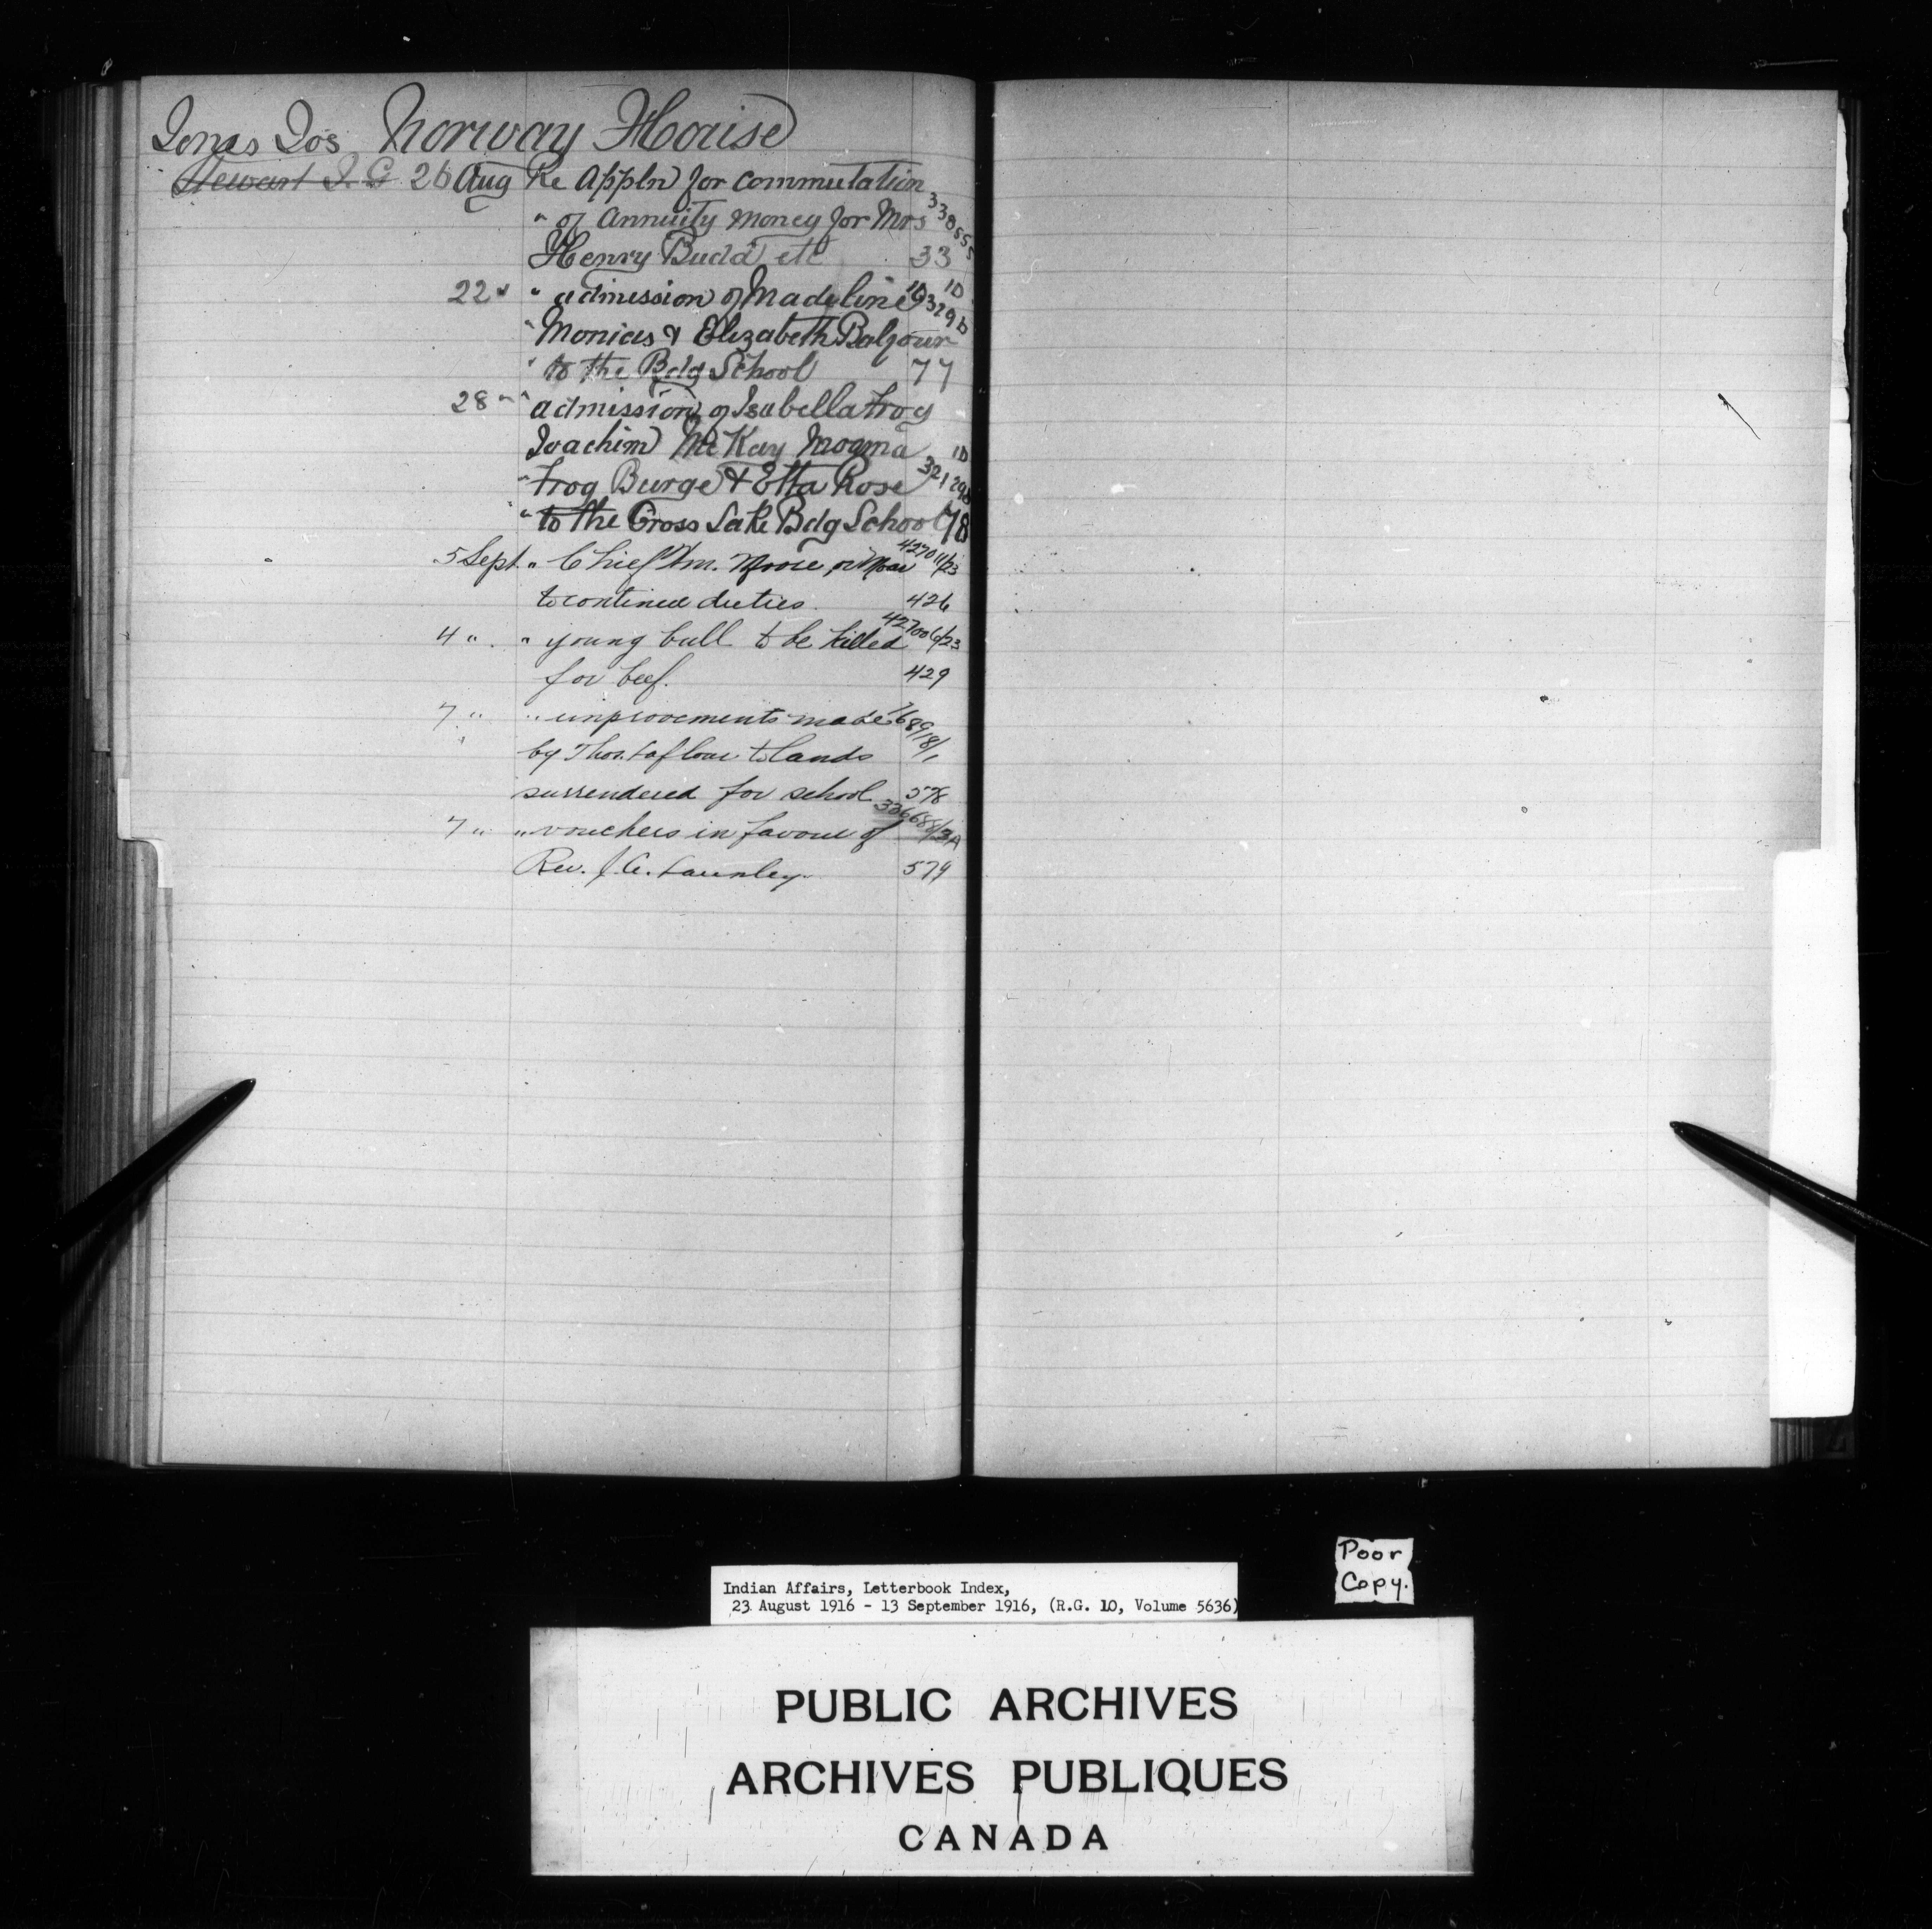 Jones Jos Norway House
Stewart J. G. 26 Aug Re Appln for commutation
" of Annuity money for Mrs 338555
Henry Budd etc 33
22 " " admission of Madeline
" Monias & Elizabeth Balfour
" to the Bdg School 77
28 " " admission of Isabella Frog
Joachim McKay Mogma
" Frog Burge & Etta Rose
" to the Cross Lake Bdg School 78
5 Sept. " Chief Wm. Moore, or Moar
to continue duties. 426
4 " " young bull to be killed
for beef. 429
7 " " improvements made
by Thos. to lands
surrendered for school 578
7 " " vouchers in favour of
Rev. J. A. Lousley. 579
Poor
Copy.
Indian Affairs, Letterbook Index,
23 August 1916 - 13 September 1916, (R.G. 10, Volume 5636)
PUBLIC ARCHIVES
ARCHIVES PUBLIQUES
CANADA